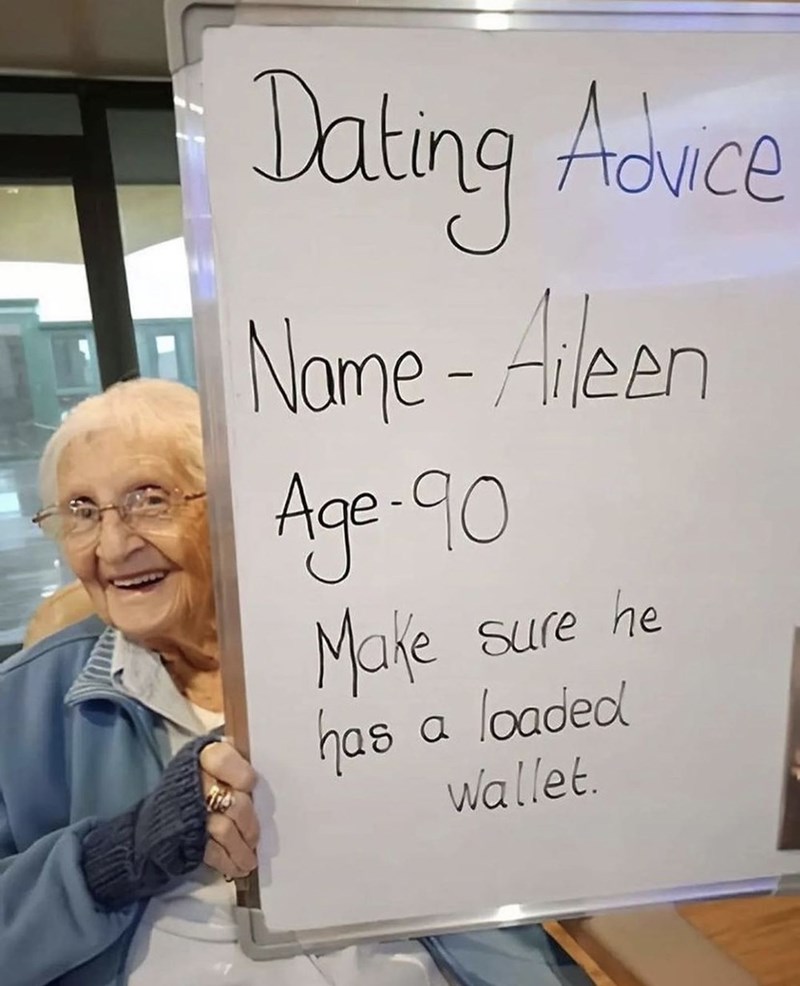 Dating Advice
Name - Aileen
Age-90
Make sure he
has a loaded
wallet.